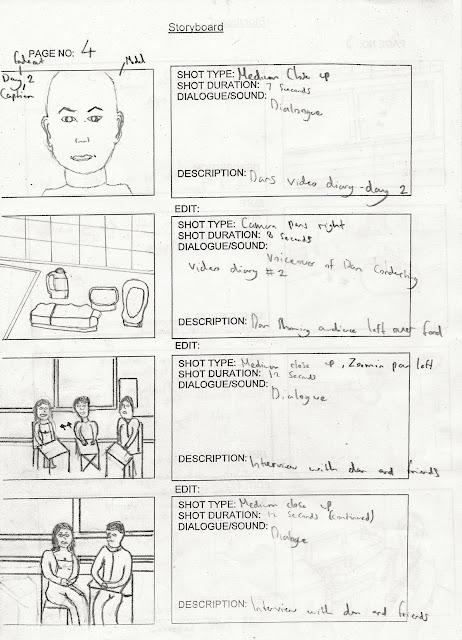 Storyboard
PAGE NO: 4
Fadeout
Day 2
Caption
SHOT TYPE: Medium Close up
SHOT DURATION: 7 seconds
DIALOGUE/SOUND:
Dialogue
DESCRIPTION: Dans video diary - day 2
EDIT:
SHOT TYPE: Camera pans right
SHOT DURATION: 8 seconds
DIALOGUE/SOUND:
Voiceover of Dan Conducting
Video diary #2
DESCRIPTION: Dan showing audience left over food
EDIT:
SHOT TYPE: Medium close up, Zoomin pan left
SHOT DURATION: 12 seconds
DIALOGUE/SOUND:
Dialogue
DESCRIPTION: Interview with dan and friends
EDIT:
SHOT TYPE: Medium close up
SHOT DURATION: 12 seconds (continued)
DIALOGUE/SOUND:
Dialogue
DESCRIPTION: Interview with dan and friends